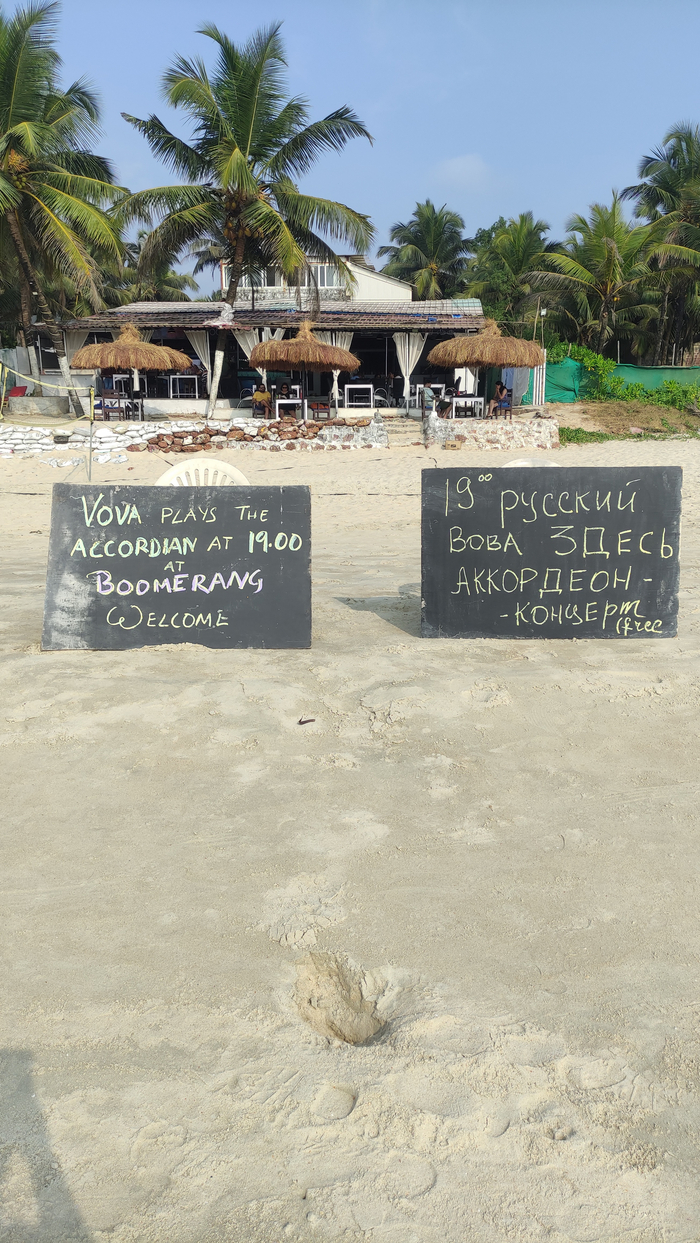 VOVA PLAYS THE !
ACCORDIAN AT 19.00
AT
BOOMERANG
WELCOME
19⁰⁰ русский
ВОВА ЗДЕСЬ
АККОРДЕОН -
- КОНЦЕРТ
(free